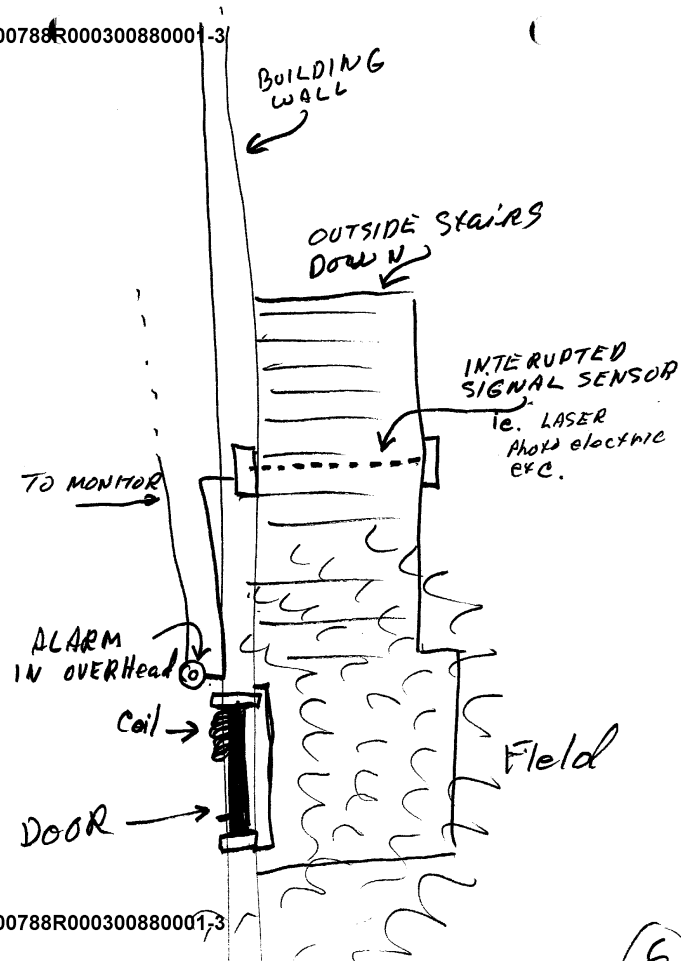 00788R000300880001-3
BUILDING
WALL
OUTSIDE StaiRS
DOWN
INTERUPTED
SIGNAL SENSOR
ie. LASER
Photo electric
etc.
TO MONITOR
ALARM
IN OVERHead
Coil
Field
DOOR
00788R000300880001-3